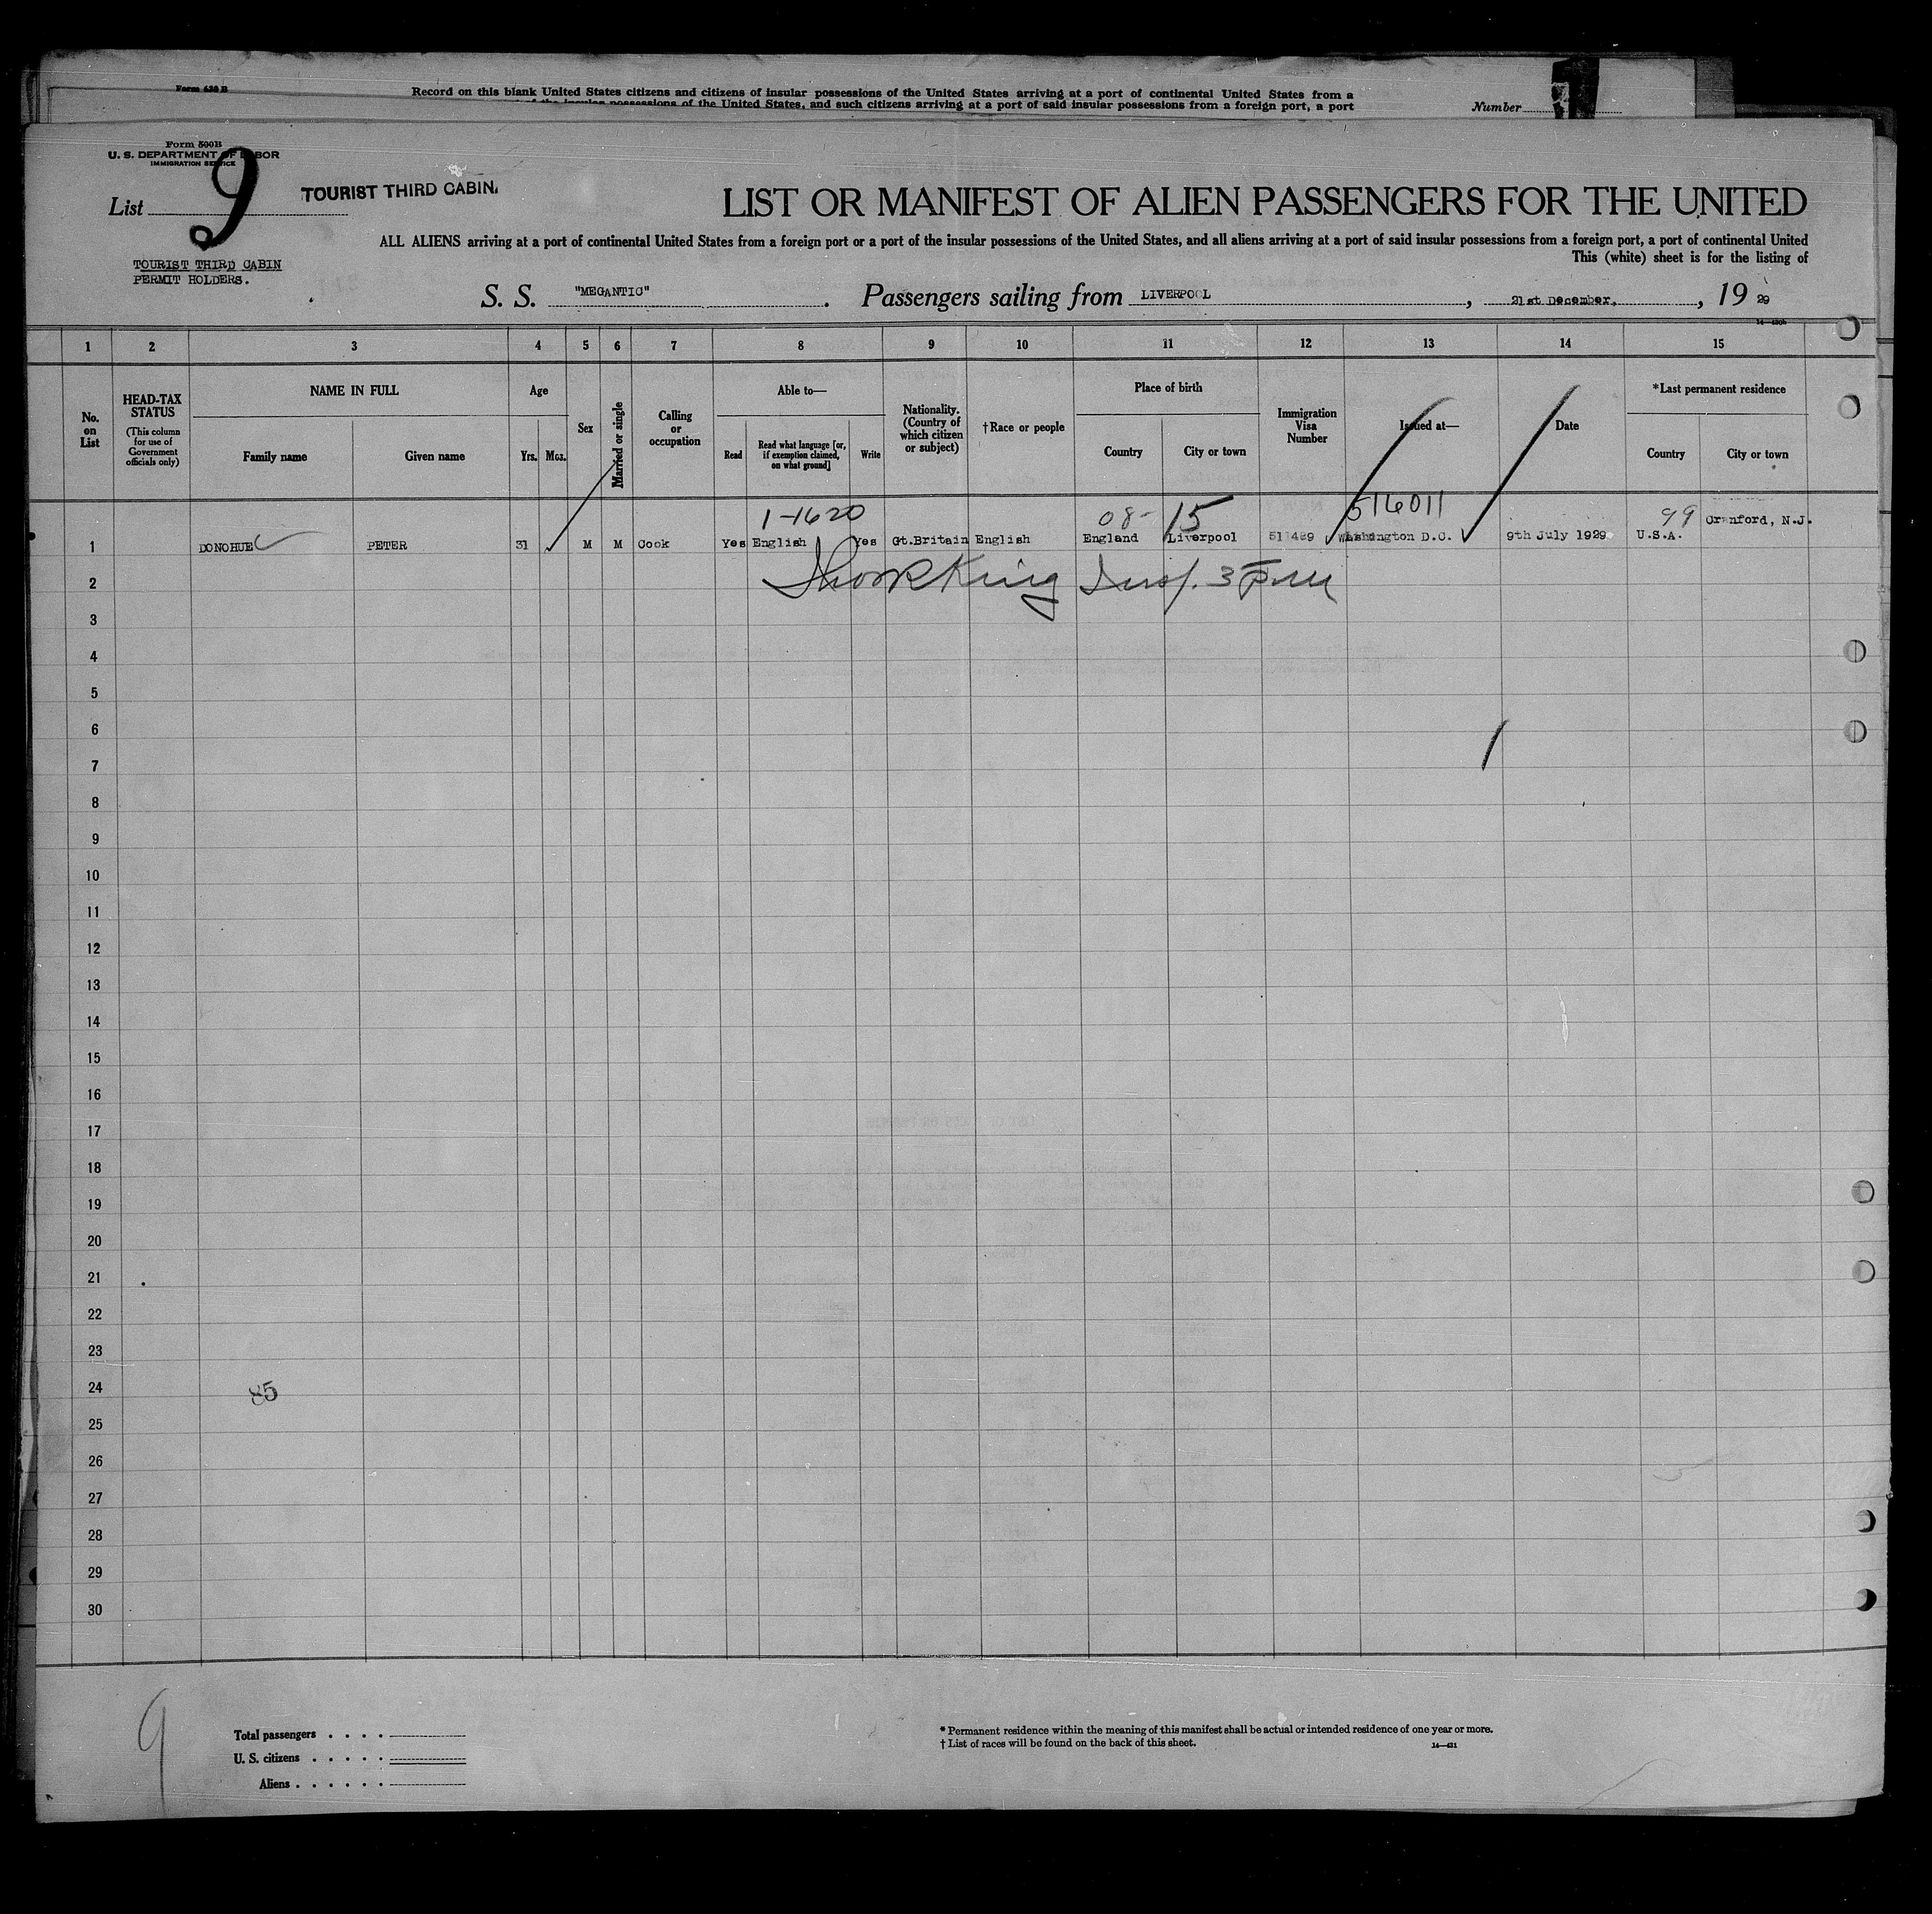 Form 630 B
Record on this blank United States citizens and citizens of insular possessions of the United States arriving at a port of continental United States from a
of the insular possessions of the United States, and such citizens arriving at a port of said insular possessions from a foreign port, a port
Number
Form 500B
U. S. DEPARTMENT OF LABOR
IMMIGRATION SERVICE
List 9
TOURIST THIRD CABIN.
LIST OR MANIFEST OF ALIEN PASSENGERS FOR THE UNITED
ALL ALIENS arriving at a port of continental United States from a foreign port or a port of the insular possessions of the United States, and all aliens arriving at a port of said insular possessions from a foreign port, a port of continental United
This (white) sheet is for the listing of
TOURIST THIRD CABIN
PERMIT HOLDERS.
S. S. "MEGANTIC". Passengers sailing from LIVERPOOL, 21st December, 19 29
1 2 3 4 5 6 7 8 9 10 11 12 13 14 15
No. on List
HEAD-TAX STATUS
(This column for use of Government officials only)
NAME IN FULL
Family name
Given name
Age
Yrs. Mos.
Sex
Married or single
Calling or occupation
Able to—
Read
Read what language [or, if exemption claimed, on what ground]
Write
Nationality. (Country of which citizen or subject)
†Race or people
Place of birth
Country
City or town
Immigration Visa Number
Issued at—
Date
*Last permanent residence
Country
City or town
1-1620 08- 15 516011 99
1 DONOHUE PETER 31 M M Cook Yes English Yes Gt.Britain English England Liverpool 511489 Washington D.C. 9th July 1929 U.S.A. Cranford, N.J.
2 King Insp.
3
4
5
6
7
8
9
10
11
12
13
14
15
16
17
18
19
20
21
22
23
24 85
25
26
27
28
29
30
9
Total passengers . . . .
U. S. citizens . . . . .
Aliens . . . . . .
* Permanent residence within the meaning of this manifest shall be actual or intended residence of one year or more.
† List of races will be found on the back of this sheet.
14—431